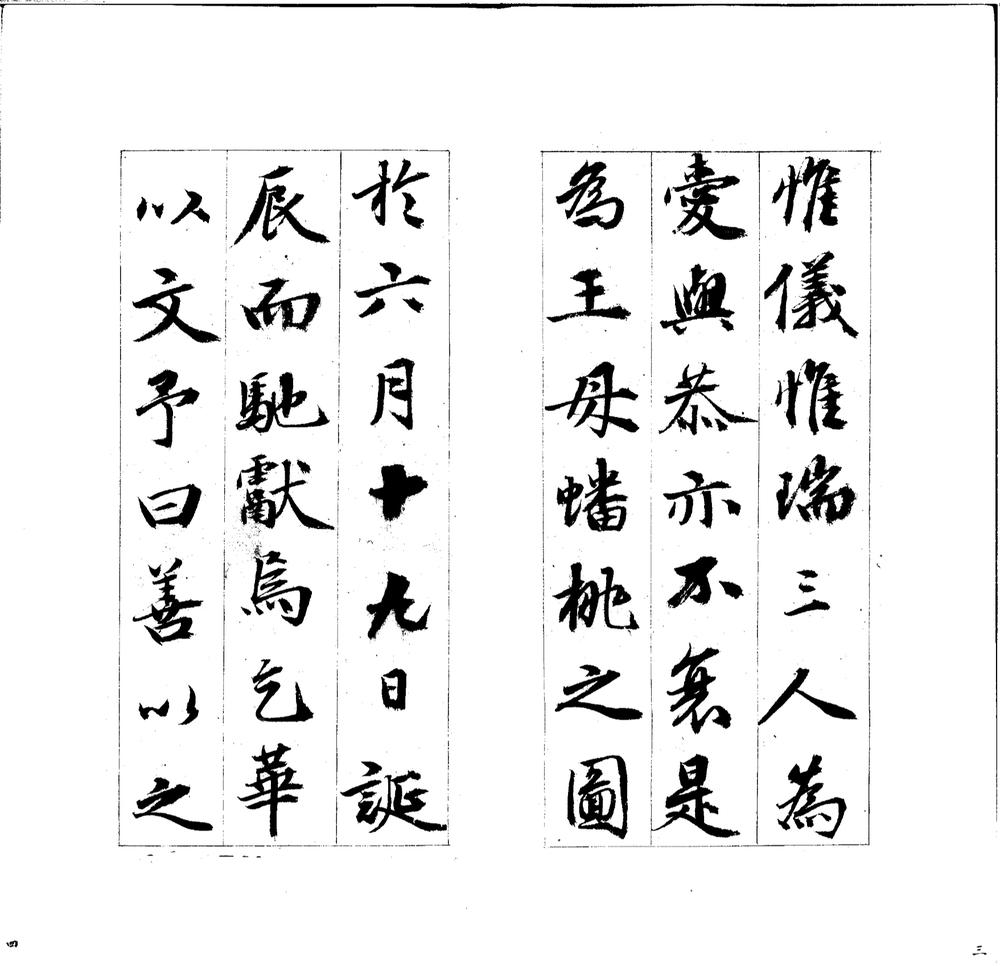 惟儀惟瑞三人為
愛與恭亦不衰是
為王母蟠桃之圖
三
於六月十九日誕
辰而馳獻焉乞華
以文予曰善以之
四